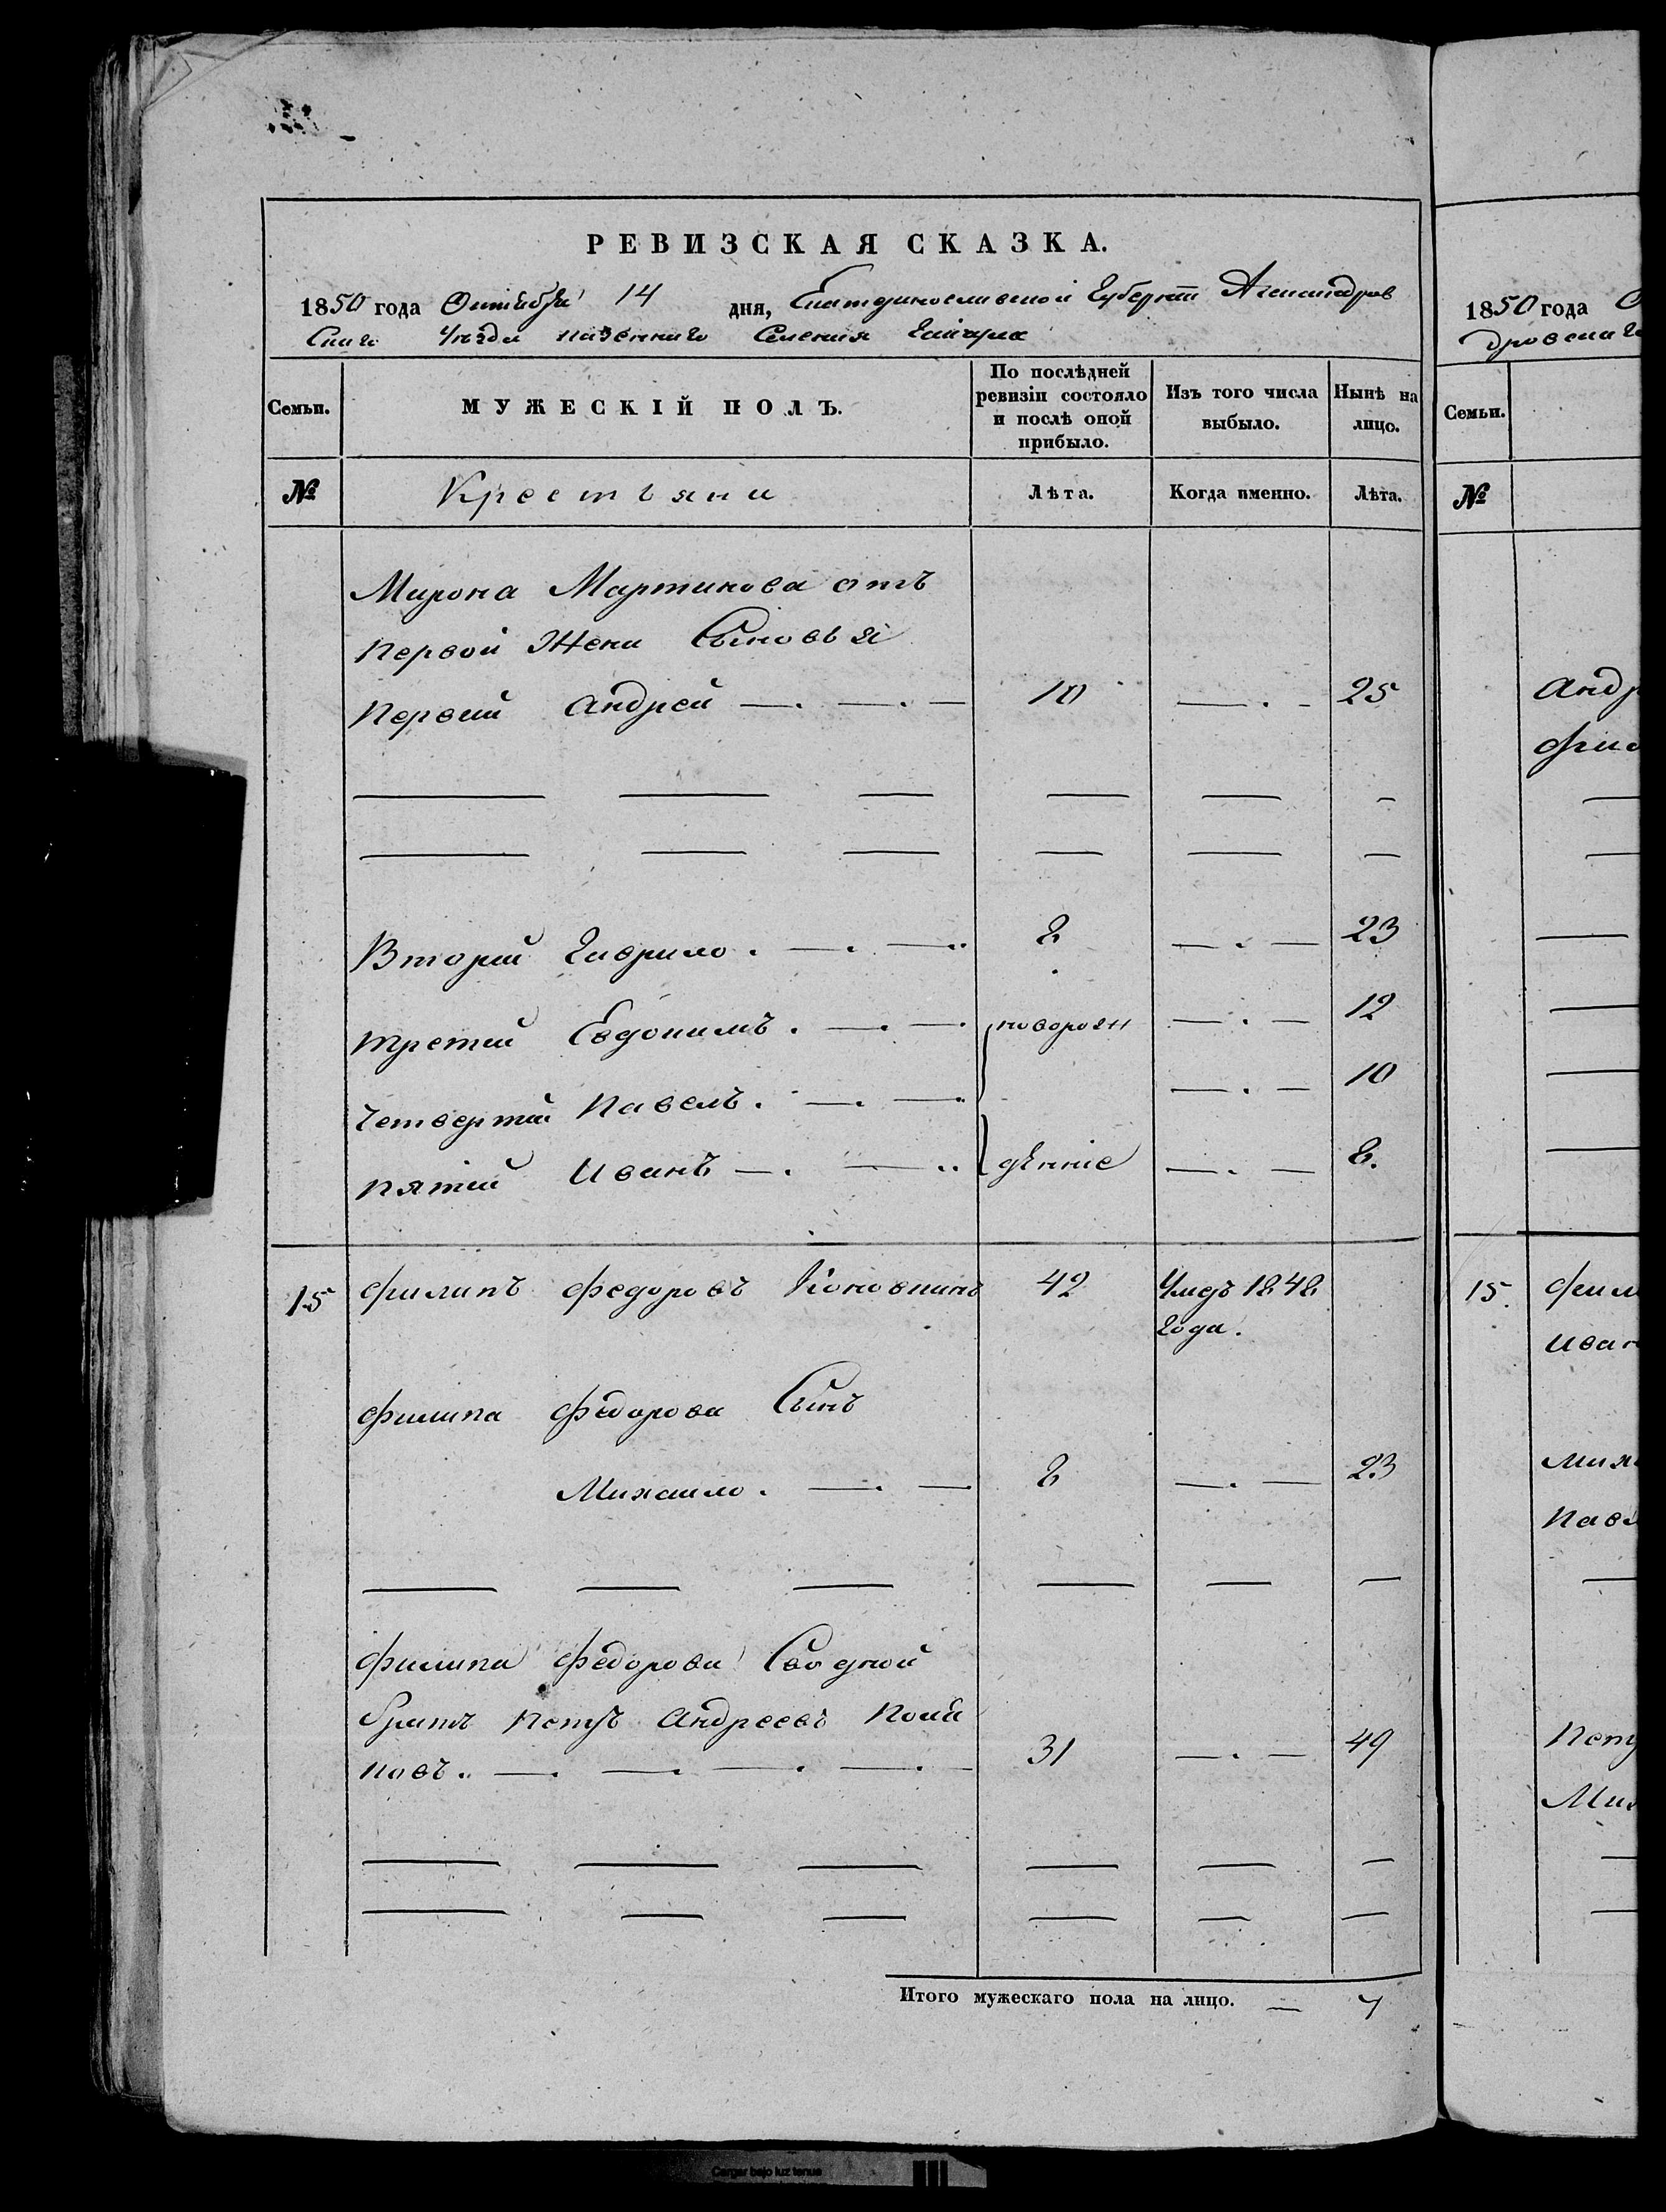 РЕВИЗСКАЯ СКАЗКА.
1850 года Октября 14 дня, Екатеринославской Губернiи Александров
Скаго Уѣзда казеннаго Селенiя Гайчула
Семьи.
МУЖЕСКІЙ ПОЛЪ.
По послѣдней ревизіи состояло и послѣ оной прибыло.
Изъ того числа выбыло.
Нынѣ на лицо.
№
Крестьяни
Лѣта.
Когда именно.
Лѣта.
Мирона Мартинова отъ
первой Жени Сыновья
первий Андрей —. —. — 10 —. — 25
Вторий Гаврило. —. —.. 8 —. — 23
третий Евдокимъ. —. —. новорож —. — 12
Четвертий Павелъ. —. —. —. — 10
пятий Иванъ —. —.. дѣнніе —. — 8.
15 Филипъ Федоровъ Коновкинъ 42 Умеръ 1848
года.
Филипа Федорова Сынъ
Михаило. —. — 8 —. — 23
Филипа Федорова Сводной
братъ Петръ Андреевъ
31 —. — 49
Итого мужескаго пола на лицо. — 7
1850 года О
дровскаго
Семьи.
№
Андр
Фил
15. Фили
Иван
Миха
Павл
Петр
Мих
Cargar bajo luz tenue